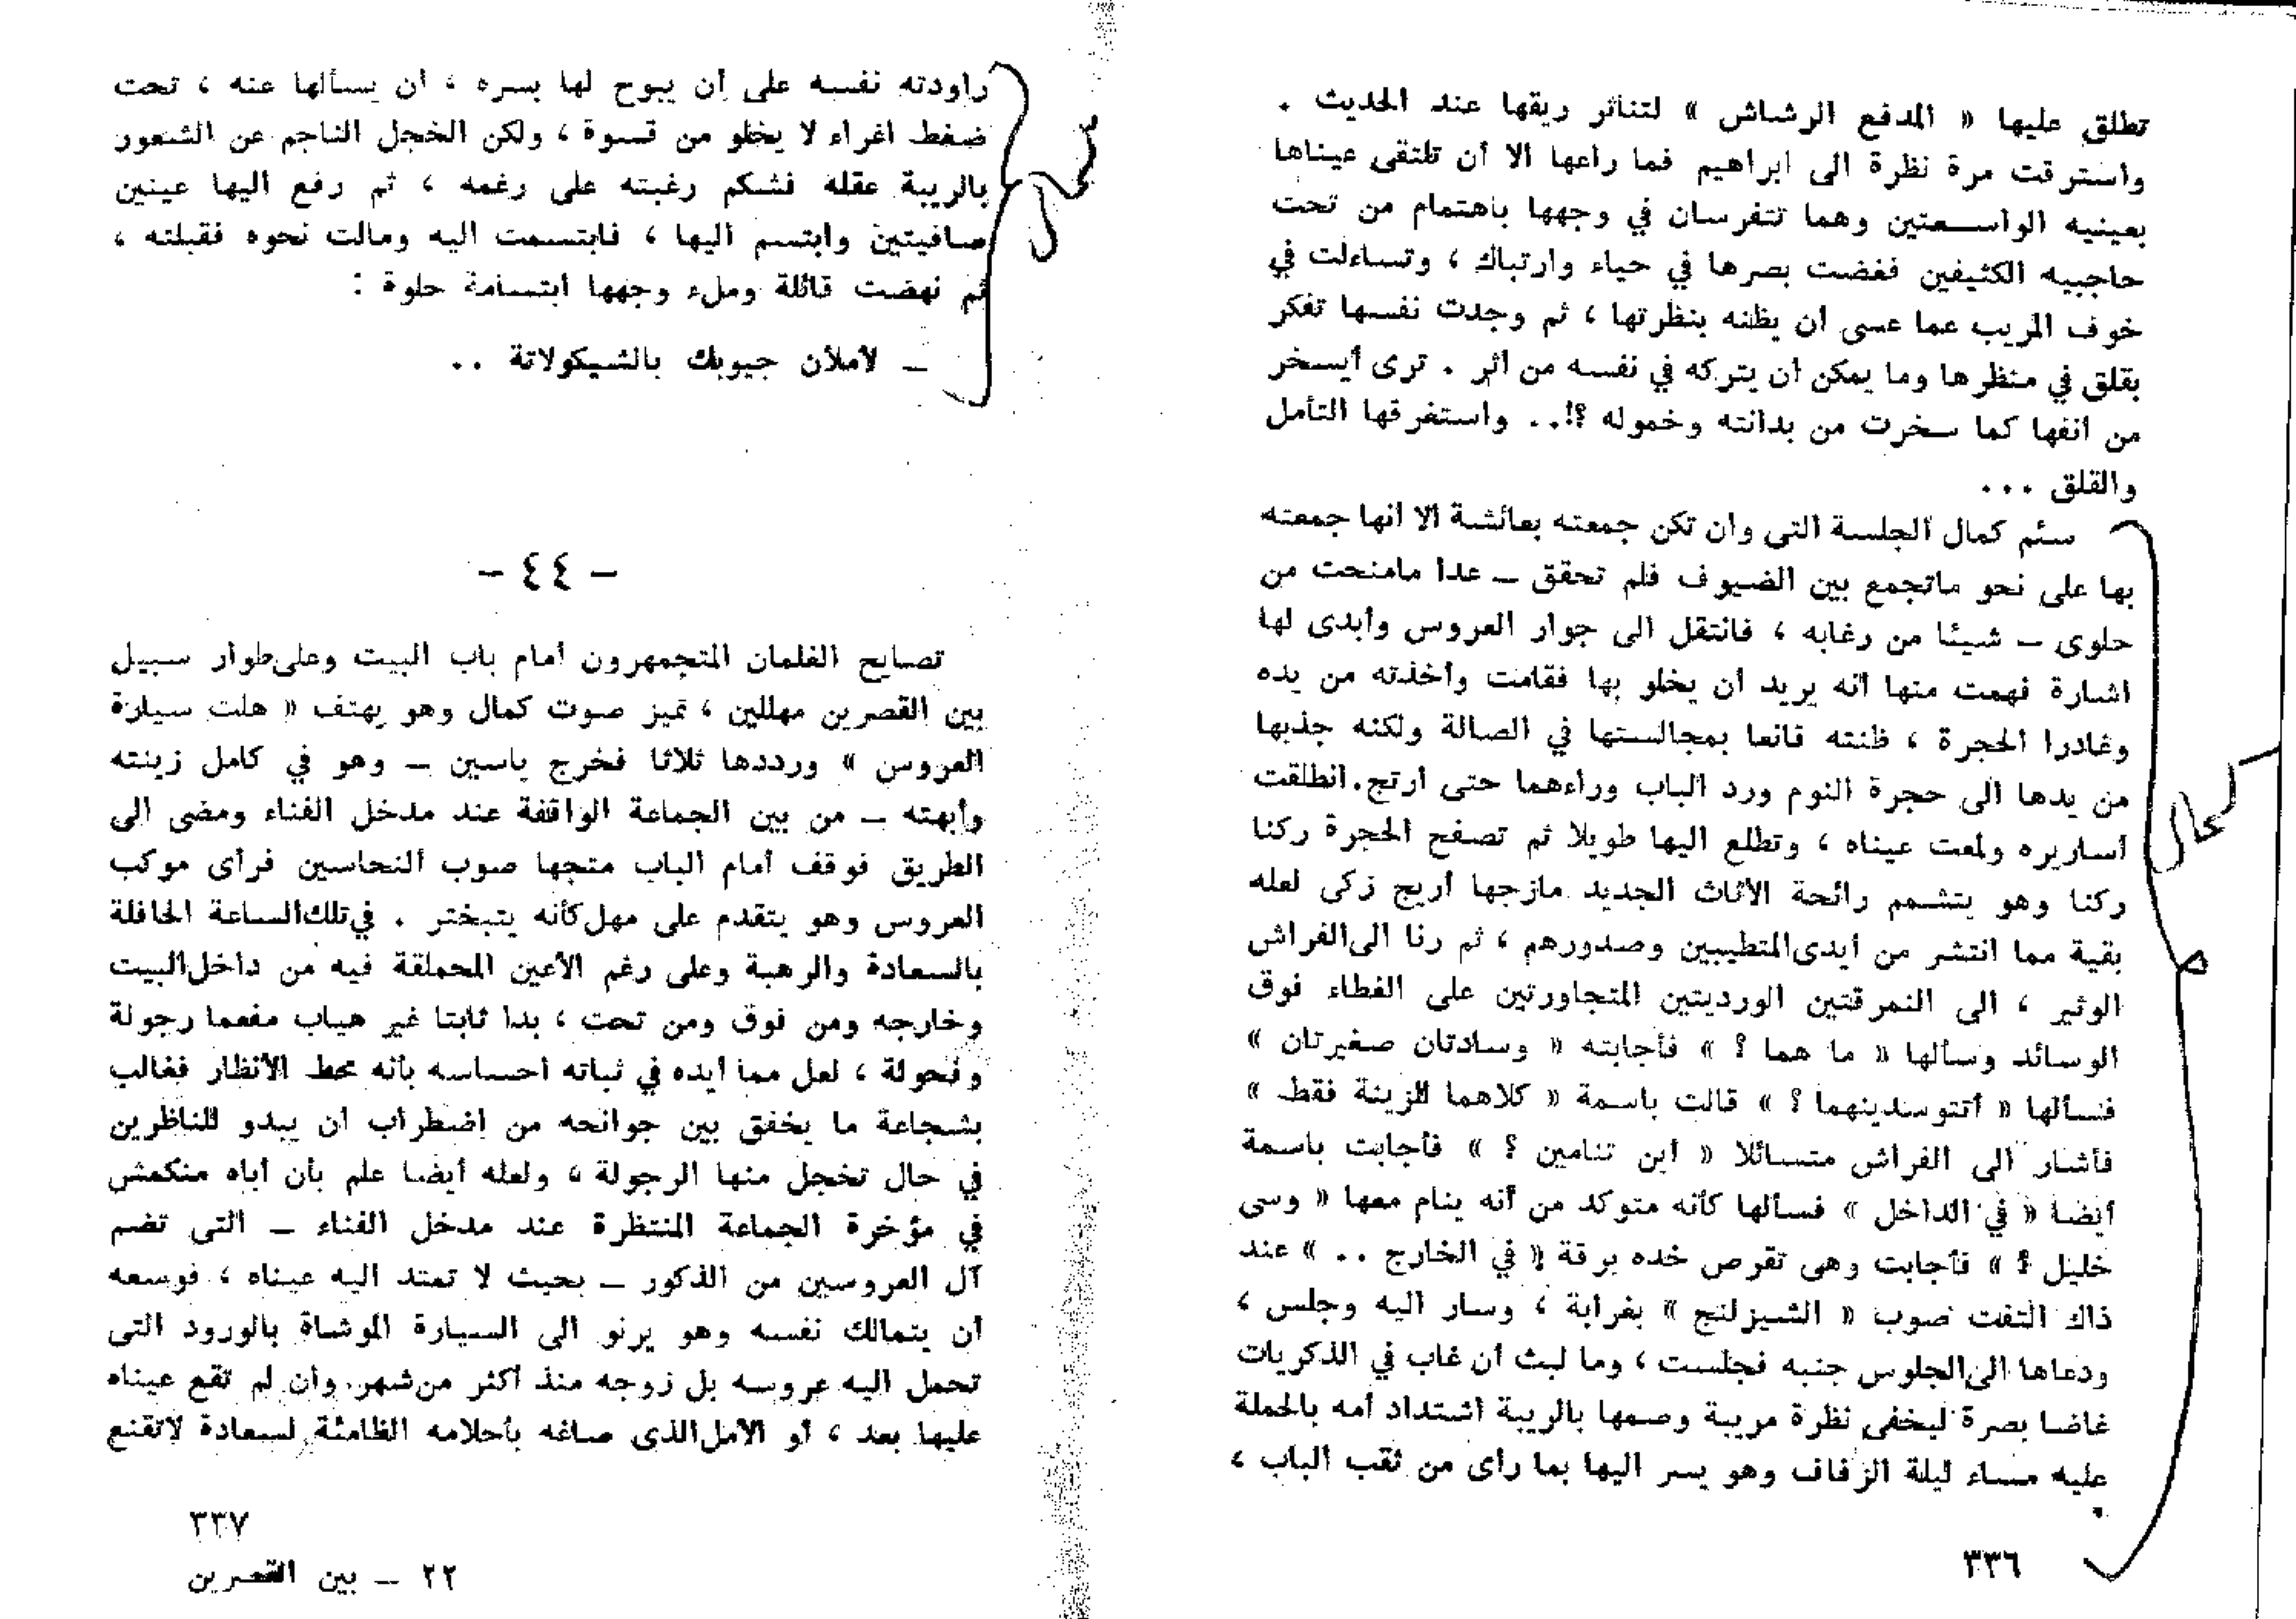 تطلق عليها « المدفع الرشاش » لتناثر ريقها عند الحديث .
واسترقت مرة نظرة الى ابراهيم فما راعها الا أن تلتقى عيناها
بعينيه الواسعتين وهما تتفرسان في وجهها باهتمام من تحت
حاجبيه الكثيفين فغضت بصرها في حياء وارتباك ، وتساءلت في
خوف المريب عما عسى ان يظنه بنظرتها ، ثم وجدت نفسها تفكر
بقلق في منظرها وما يمكن أن يتركه في نفسه من أثر . ترى أيسخر
من أنفها كما سخرت من بدانته وخموله ؟!.. واستغرقها التأمل
والقلق ...
سئم كمال الجلسة التى وان تكن جمعته بعائشة الا أنها جمعته
بها على نحو ماتجمع بين الضيوف فلم تحقق – عدا مامنحت من
حلوى – شيئا من رغابه ، فانتقل الى جوار العروس وأبدى لها
اشارة فهمت منها أنه يريد أن يخلو بها فقامت وأخذته من يده
وغادرا الحجرة ، ظنته قانعا بمجالستها في الصالة ولكنه جذبها
من يدها الى حجرة النوم ورد الباب وراءهما حتى ارتج . انطلقت
أساريره ولمعت عيناه ، وتطلع اليها طويلا ثم تصفح الحجرة ركنا
ركنا وهو يتشمم رائحة الأثاث الجديد مازجها أريج زكى لعله
بقية مما انتشر من أيدى المتطيبين وصدورهم ، ثم رنا الى الفراش
الوثير ، الى النمرقتين الورديتين المتجاورتين على الغطاء فوق
الوسائد وسألها « ما هما ؟ » فأجابته « وسادتان صغيرتان »
فسألها « أتتوسدينهما ؟ » قالت باسمة « كلاهما للزينة فقط »
فأشار الى الفراش متسائلا « اين تنامين ؟ » فأجابت باسمة
أيضا « في الداخل » فسألها كأنه متوكد من أنه ينام معها « وسى
خليل ؟ » فأجابت وهى تقرص خده برقة « في الخارج .. » عند
ذاك التفت صوب « الشيزلنج » بغرابة ، وسار اليه وجلس ،
ودعاها الى الجلوس جنبه فجلست ، وما لبث أن غاب في الذكريات
غاضا بصرة ليخفى نظرة مريبة وصمها بالريبة اشتداد أمه بالحملة
عليه مساء ليلة الزفاف وهو يسر اليها بما رأى من ثقب الباب ،
٣٣٦
راودته نفسه على أن يبوح لها بسره ، أن يسألها عنه ، تحت
ضغط اغراء لا يخلو من قسوة ، ولكن الخجل الناجم عن الشعور
بالريبة عقله فشكم رغبته على رغمه ، ثم رفع اليها عينين
صافيتين وابتسم اليها ، فابتسمت اليه ومالت نحوه فقبلته ،
ثم نهضت قائلة وملء وجهها ابتسامة حلوة :
– لأملأن جيوبك بالشيكولاتة ..
– ٤٤ –
تصايح الغلمان المتجمهرون أمام باب البيت وعلى طوار سبيل
بين القصرين مهللين ، تميز صوت كمال وهو يهتف « هلت سيارة
العروس » ورددها ثلاثا فخرج ياسين – وهو في كامل زينته
وأبهته – من بين الجماعة الواقفة عند مدخل الفناء ومضى الى
الطريق فوقف أمام الباب متجها صوب النحاسين فرأى موكب
العروس وهو يتقدم على مهل كأنه يتبختر . في تلك الساعة الحافلة
بالسعادة والرهبة وعلى رغم الأعين المحملقة فيه من داخل البيت
وخارجه ومن فوق ومن تحت ، بدا ثابتا غير هياب مفعما رجولة
وفحولة ، لعل مما أيده في ثباته احساسه بأنه محط الأنظار فغالب
بشجاعة ما يخفق بين جوانحه من إضطراب أن يبدو للناظرين
في حال تخجل منها الرجولة ، ولعله أيضا علم بأن أباه منكمش
في مؤخرة الجماعة المنتظرة عند مدخل الفناء – التى تضم
آل العروسين من الذكور – بحيث لا تمتد اليه عيناه ، فوسعه
أن يتمالك نفسه وهو يرنو الى السيارة الموشاة بالورود التى
تحمل اليه عروسه بل زوجه منذ أكثر من شهر وان لم تقع عيناه
عليها بعد ، أو الأمل الذى صاغه بأحلامه الظامئة لسعادة لاتقنع
٣٣٧
٢٢ – بين القصرين